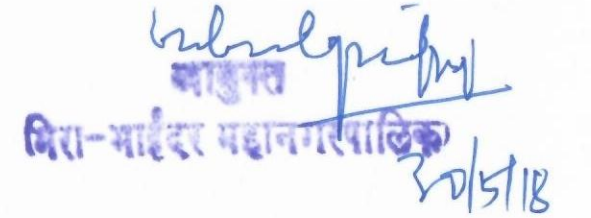 आयुक्त
मिरा-भाईंदर महानगरपालिका
30/5/18